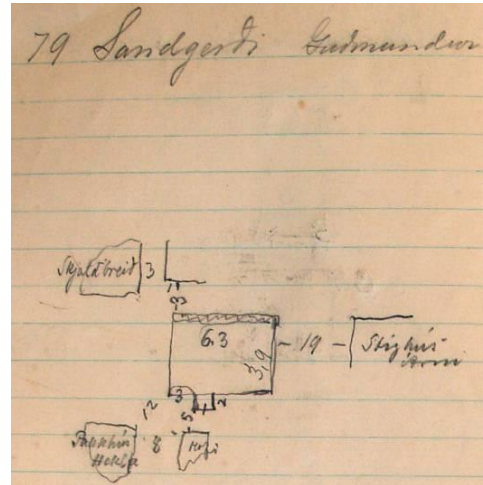 79 Sandgerdi Gudmundur
Skjaldbreid 3
3
6.3
3,9
- 19 -
Stighús
Arni
3
12
5
2
Pakkhús
Hekla
8
Kofi